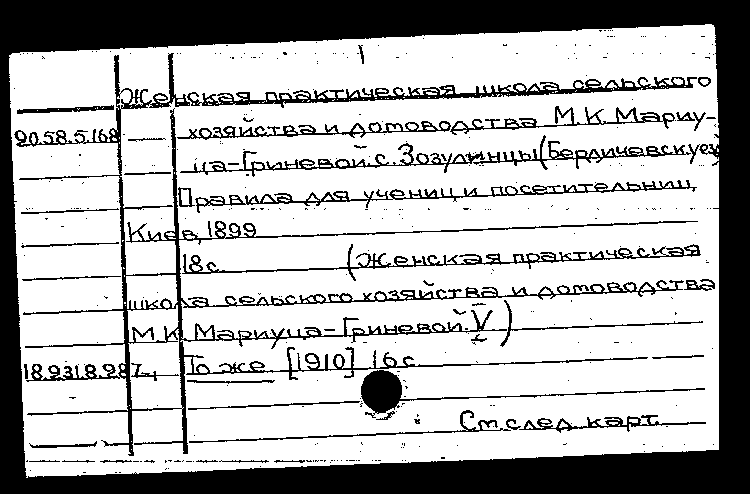 Женская практическая школа сельского
90.58.5.168 хозяйства и домоводства М.К. Мариу-
ца-Гриневой. с. Зозулинцы (Бердичевск. уез)
Правила для учениц и посетительниц,
Киев, 1899
18 с. (Женская практическая
школа сельского хозяйства и домоводства
М.К. Мариуца-Гриневой. V)
18.231.8.287 То же [1910] 16 с.
См. след. карт.